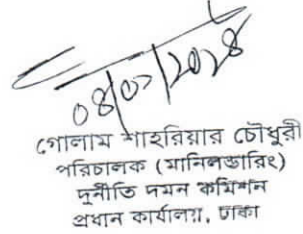 ০৪/০২/২০২৪
গোলাম শাহরিয়ার চৌধুরী
পরিচালক (মানিলন্ডারিং)
দুর্নীতি দমন কমিশন
প্রধান কার্যালয়, ঢাকা